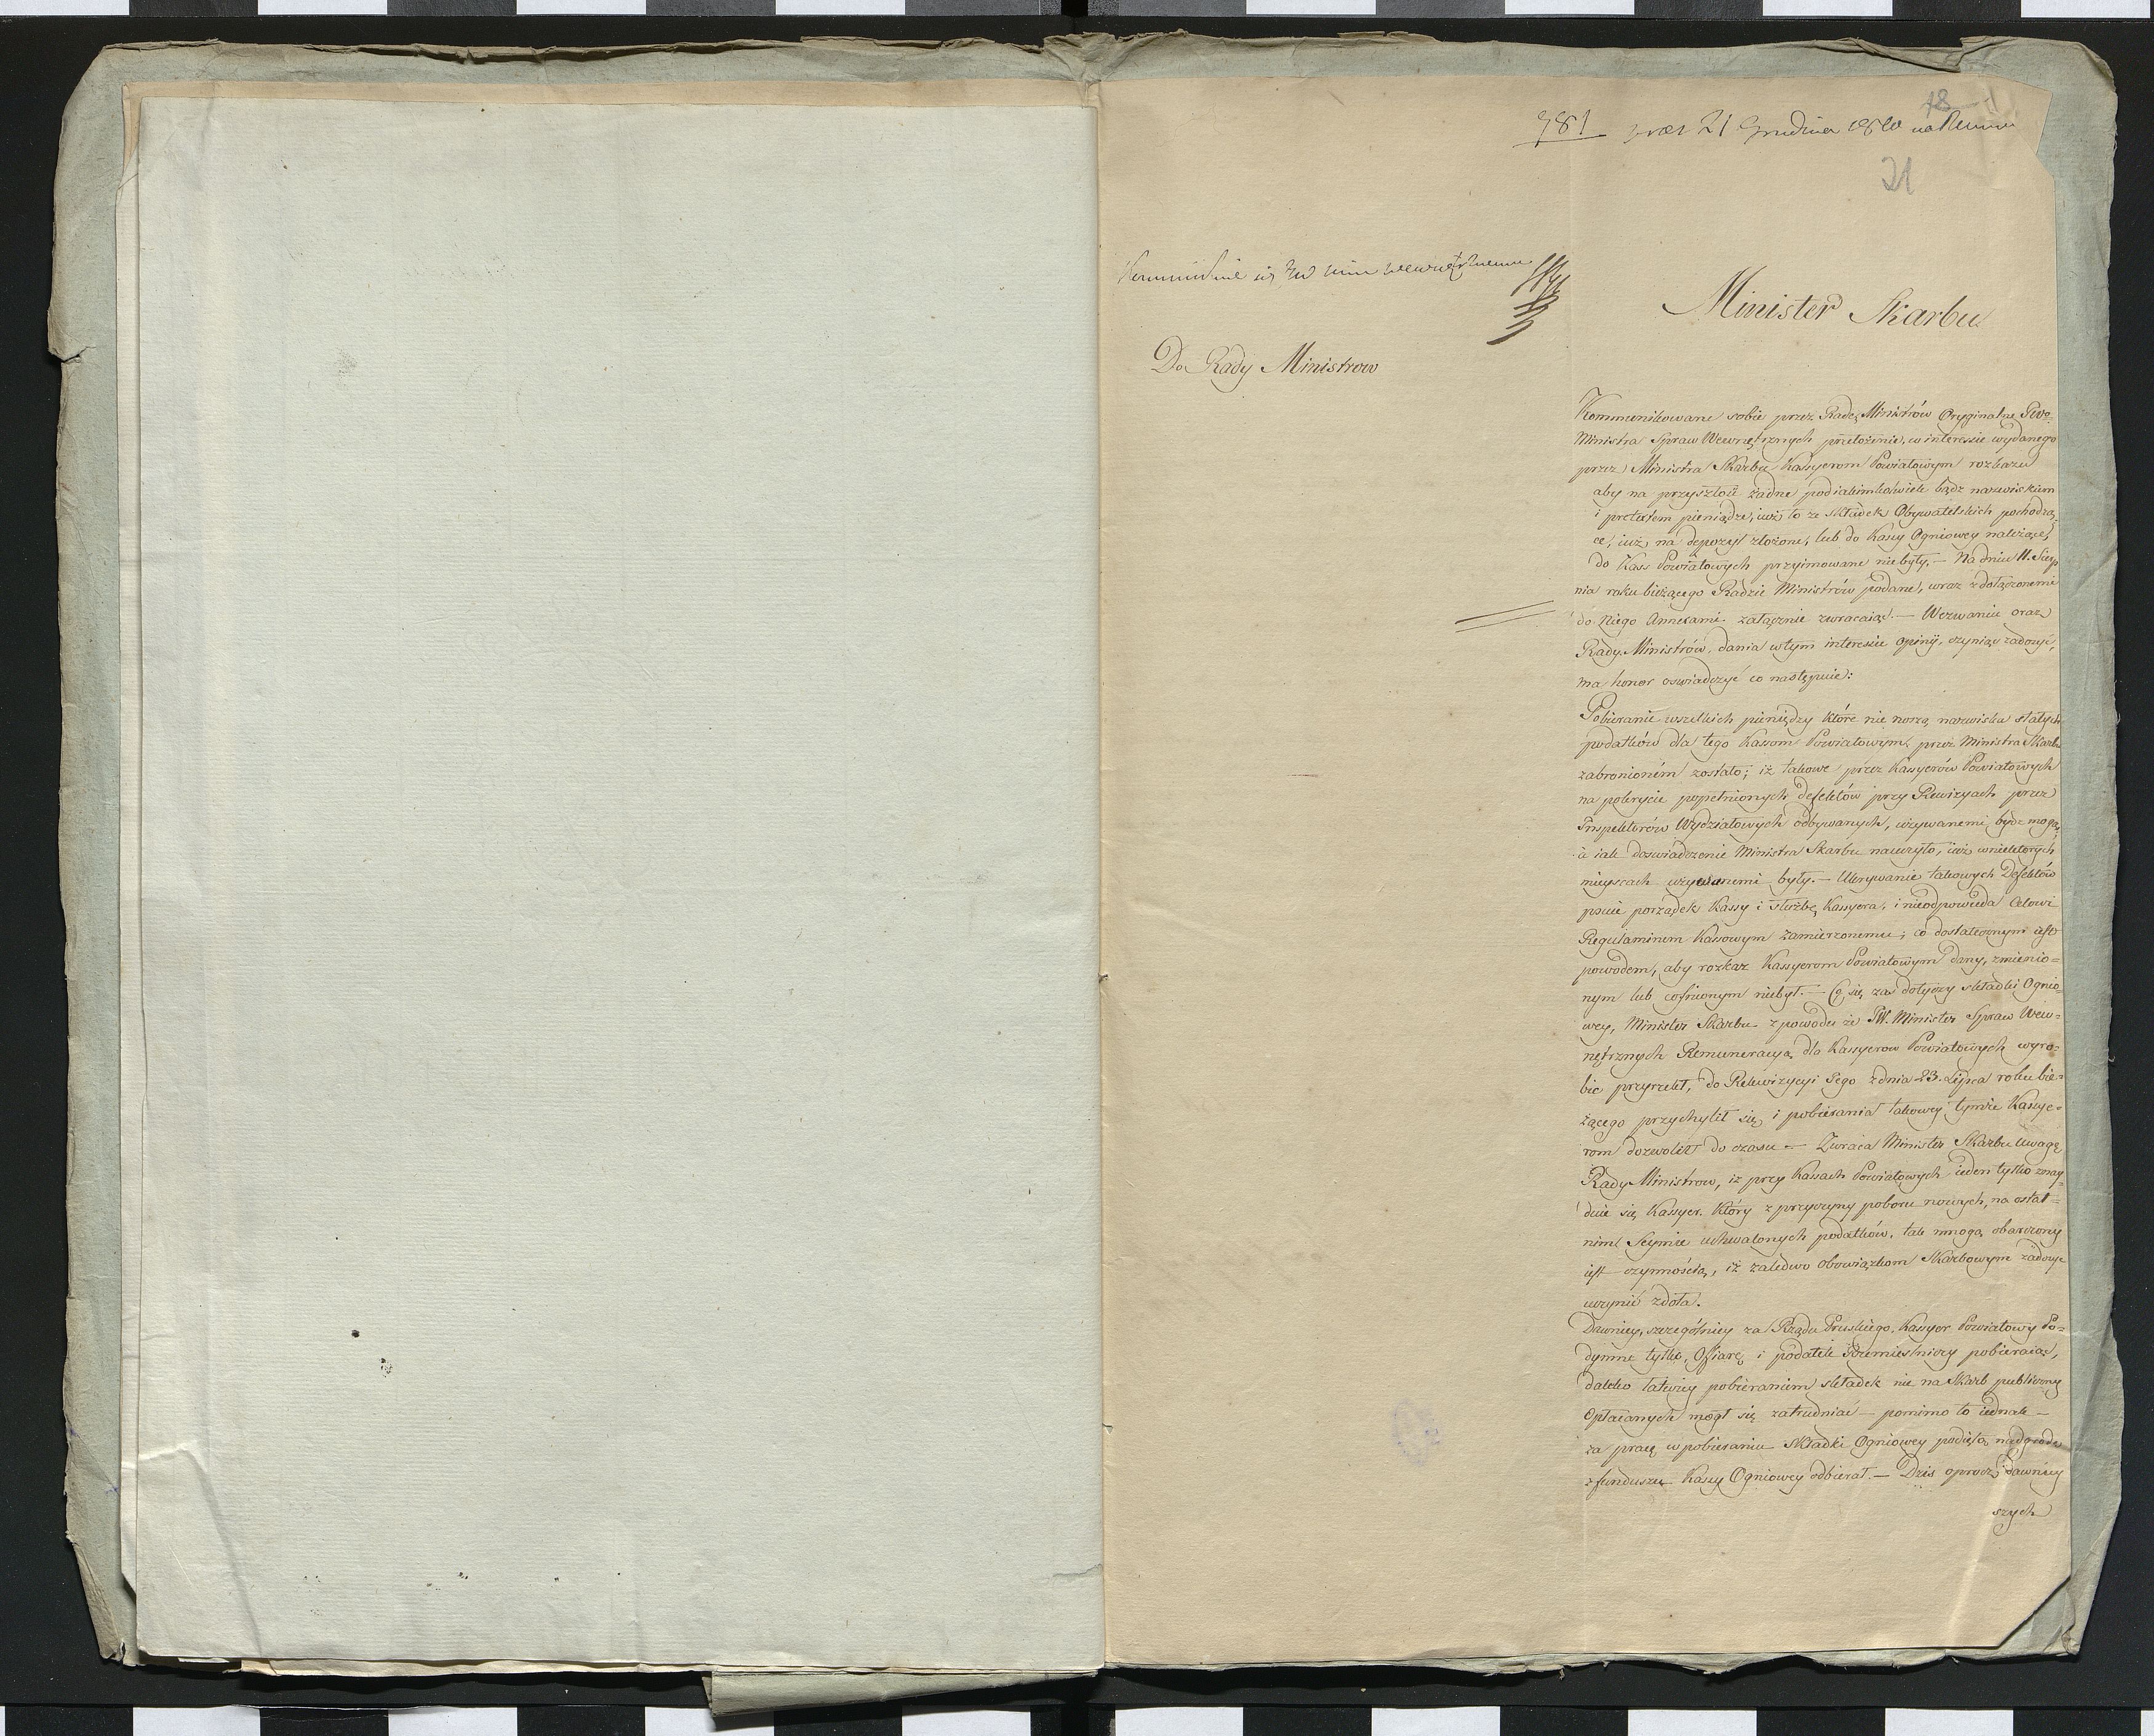 18
781 prae 21 Grudnia 1810
21
Kommunikuie się JW Min wewnętrznemu
Minister Skarbu
Do Rady Ministrow
Kommunikowane sobie przez Radę Ministrów Oryginalne JWo
Ministra Spraw Wewnętrznych przełożenie, w interessie wydanego
przez Ministra Skarbu Kassyerom Powiatowym rozkazu
aby na przyszłość żadne pod iakimkolwiek bądz nazwiskiem
i pretextem pieniądze, iuż to ze składek Obywatelskich pochodzą=
ce, iuż na depozyt złożone, lub do Kassy Ogniowey należące,
do Kass Powiatowych przyimowane niebyły. — Na dniu 11. Sierp
nia roku bieżącego Radzie Ministrów podane, wraz z dołączonemi
do Niego Annexami załącznie zwracaiąc. — Wezwaniu oraz
Rady Ministrów, dania w tym interessie opinij, czyniąc zadosyć,
ma honor oswiadczyć co następuie:
Pobieranie wszelkich pieniędzy które nie noszą nazwiska stałych
podatków dla tego Kassom Powiatowym przez Ministra Skarbu
zabronioném zostało; iż takowe przez Kassyerów Powiatowych
na pokrycie popełnionych defektów przy Rewizyach przez
Inspektorów Wydziałowych odbywanych, używanemi bydz mogą,
a iak doswiadczenie Ministra Skarbu nauczyło, iuż w niektorych
mieyscach używanemi były. — Ukrywanie takowych Defektów
psuie porządek Kassy i służbę Kassyera, i nieodpowieda Celowi
Regulaminem Kassowym zamierzonemu; co dostatecznym iest
powodem, aby rozkaz Kassyerom Powiatowym dany, zmienio=
nym lub cofnionym niebył. — Co się zas dotyczy składki Ognio=
wey, Minister Skarbu z powodu że JW. Minister Spraw Wew=
nętrznych Remuneracyą dla Kassyerow Powiatowych wyro=
bic przyrzekł, do Rekwizycyi Jego z dnia 23. Lipca roku bie=
żącego przychylił się, i pobierania takowey tymże Kassye=
rom dozwolił do czasu — Zwraca Minister Skarbu uwagę
Rady Ministrow, iż przy Kassach Powiatowych ieden tylko znay=
duie się Kassyer. Który z przyczyny poboru nowych, na ostat=
nim Seymie uchwalonych podatków, tak mnogą obarczony
iest czynnoscią, iż zaledwo obowiązkom Skarbowym zadosyc
uczynić zdoła.
Dawniey, szczegółniey za Rządu Pruskiego, Kassyer Powiatowy Po=
dymne tylko, Ofiarę i podatek Rzemieslniczy pobieraiąc,
daleko łatwiey pobieraniem składek nie na Skarb publiczny
Opłacanych mogł się zatrudniać — pomimo to iednak —
za pracę w pobieraniu Składki Ogniowey podiętą nadgrodę
z funduszu Kassy Ogniowey odbierał. — Dzis oprocz dawniey
szych